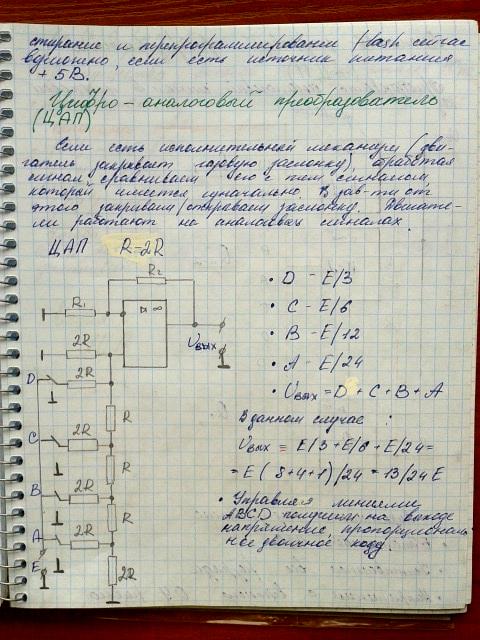 стирание и перепрограммирование flash сейчас
возможно, если есть источник питания
+ 5В.
Цифро-аналоговый преобразователь
(ЦАП)
Если есть исполнительный механизм (дви-
гатель закрывает газовую заслонку),
сигнал сравниваем его с тем сигналом,
который имеется изначально. В зав-ти от
этого закрываем/открываем заслонку. Двигате-
ли работают на аналоговых сигналах.
ЦАП R=2R
R2
R1
▷ ∞
Uвых
2R
D 2R
R
C 2R
R
B 2R
R
A 2R
E
2R
• D – E/3
• C – E/6
• B – E/12
• A – E/24
• Uвых = D + C + B + A
В данном случае :
Uвых = E/3 + E/6 + E/24 =
= E ( 8+4+1)/24 = 13/24 E
• Управляя линиями
ABCD получаем на выходе
напряжение, пропорциональ-
ное двоичное коду.